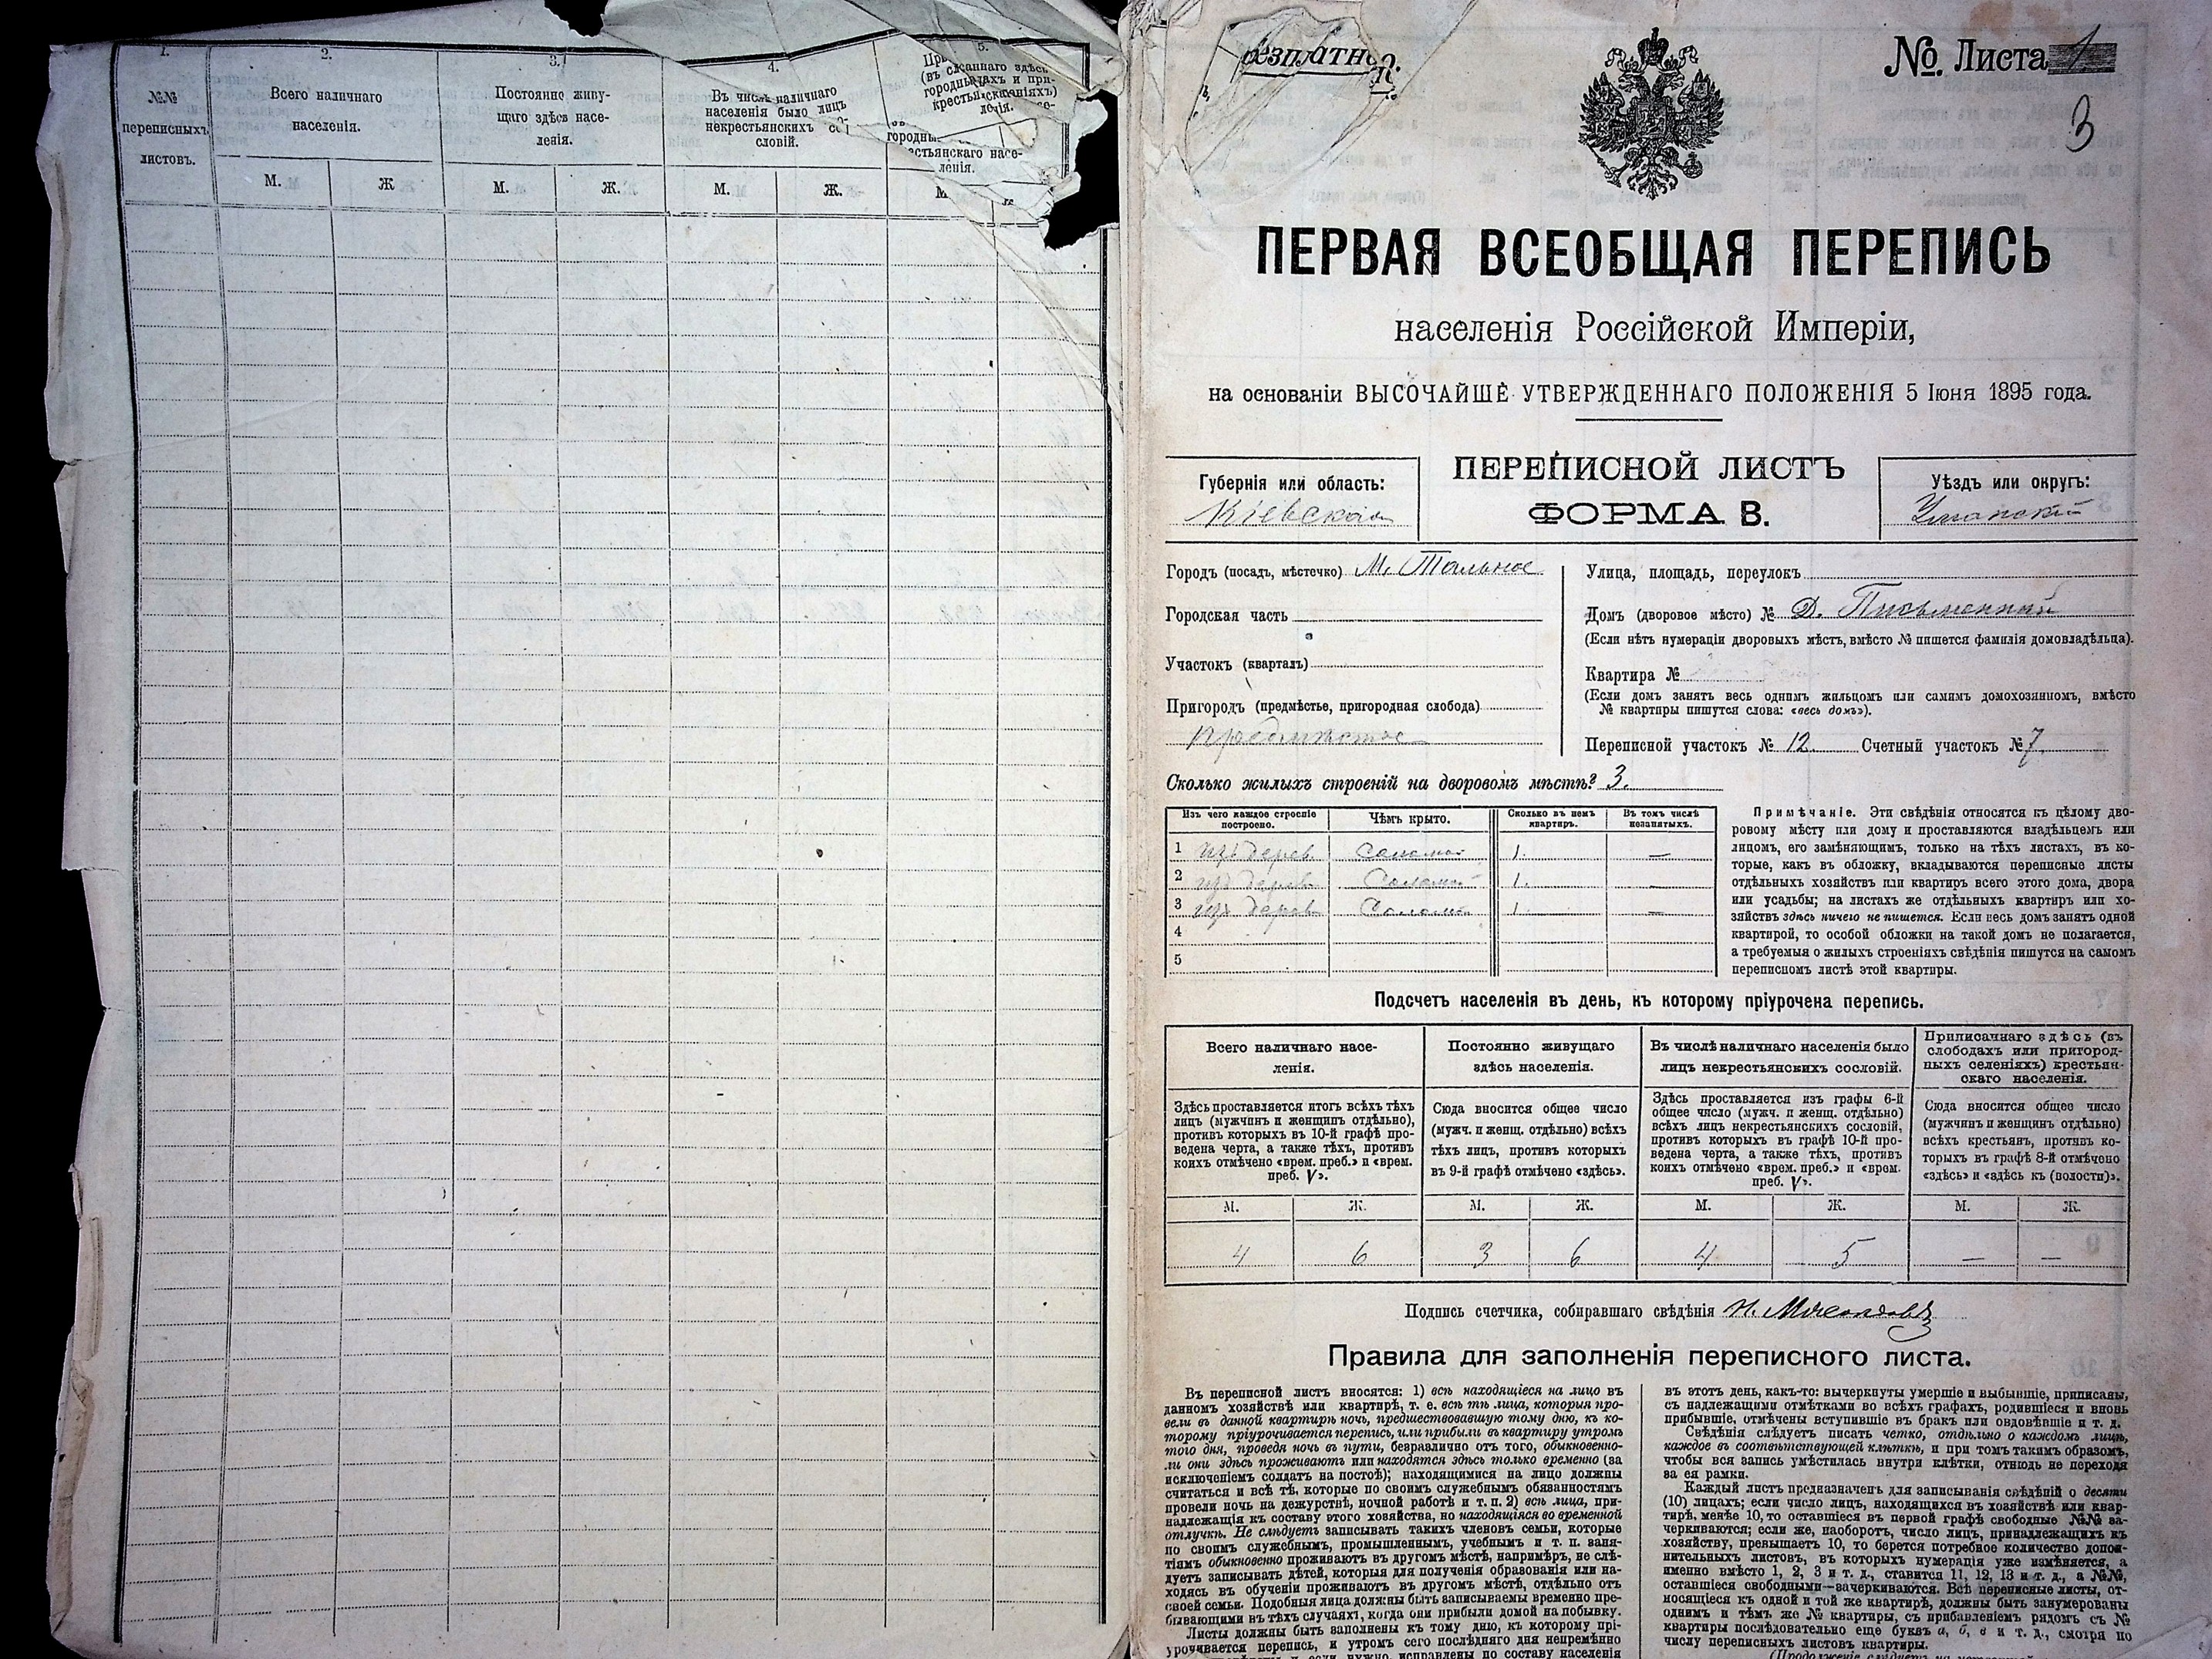 1.
№№
переписныхъ
листовъ.
2.
Всего наличнаго
населенія.
М.
Ж
3.
Постоянно живу-
щаго здѣсь насе-
ленія.
М.
Ж.
4.
Въ числѣ наличнаго
населенія было лицъ
некрестьянскихъ со
словій.
М.
Ж.
5.
М
№ Листа 1
3
ПЕРВАЯ ВСЕОБЩАЯ ПЕРЕПИСЬ
населенія Россійской Имперіи,
на основаніи ВЫСОЧАЙШЕ УТВЕРЖДЕННАГО ПОЛОЖЕНІЯ 5 Іюня 1895 года.
Губернія или область:
Кіевская
ПЕРЕПИСНОЙ ЛИСТЪ
ФОРМА В.
Уѣздъ или округъ:
Уманскій
Городъ (посадъ, мѣстечко) М. Тальное
Городская часть
Участокъ (кварталъ)
Пригородъ (предмѣстье, пригородная слобода)
Улица, площадь, переулокъ
Домъ (дворовое мѣсто) № Д. Письменный
(Если нѣтъ нумераціи дворовыхъ мѣстъ, вмѣсто № пишется фамилія домовладѣльца).
Квартира №
(Если домъ занятъ весь однимъ жильцомъ или самимъ домохозяиномъ, вмѣсто
№ квартиры пишутся слова: «весь домъ»).
Переписной участокъ № 12. Счетный участокъ № 7
Сколько жилыхъ строеній на дворовомъ мѣстѣ? 3.
Изъ чего каждое строеніе
построено.
Чѣмъ крыто.
Сколько въ немъ
квартиръ.
Въ томъ числѣ
незанятыхъ.
1 изъ дерев. Соломой 1. —
2 изъ дерев Соломой 1. —
3 изъ дерев Соломой 1. —
4
5
Примѣчаніе. Эти свѣдѣнія относятся къ цѣлому дво-
ровому мѣсту или дому и проставляются владѣльцемъ или
лицомъ, его замѣняющимъ, только на тѣхъ листахъ, въ ко-
торые, какъ въ обложку, вкладываются переписные листы
отдѣльныхъ хозяйствъ или квартиръ всего этого дома, двора
или усадьбы; на листахъ же отдѣльныхъ квартиръ или хо-
зяйствъ здѣсь ничего не пишется. Если весь домъ занятъ одной
квартирой, то особой обложки на такой домъ не полагается,
а требуемыя о жилыхъ строеніяхъ свѣдѣнія пишутся на самомъ
переписномъ листѣ этой квартиры.
Подсчетъ населенія въ день, къ которому пріурочена перепись.
Всего наличнаго насе-
ленія.
Здѣсь проставляется итогъ всѣхъ тѣхъ
лицъ (мужчинъ и женщинъ отдѣльно),
противъ которыхъ въ 10-й графѣ про-
ведена черта, а также тѣхъ, противъ
коихъ отмѣчено «врем. преб.» и «врем.
преб. V».
Постоянно живущаго
здѣсь населенія.
Сюда вносится общее число
(мужч. и женщ. отдѣльно) всѣхъ
тѣхъ лицъ, противъ которыхъ
въ 9-й графѣ отмѣчено «здѣсь».
Въ числѣ наличнаго населенія было
лицъ некрестьянскихъ сословій.
Здѣсь проставляется изъ графы 6-й
общее число (мужч. и женщ. отдѣльно)
всѣхъ лицъ некрестьянскихъ сословій,
противъ которыхъ въ графѣ 10-й про-
ведена черта, а также тѣхъ, противъ
коихъ отмѣчено «врем. преб.» и «врем.
преб. V».
Приписаннаго здѣсь (въ
слободахъ или пригород-
ныхъ селеніяхъ) крестьян-
скаго населенія.
Сюда вносится общее число
(мужчинъ и женщинъ отдѣльно)
всѣхъ крестьянъ, противъ ко-
торыхъ въ графѣ 8-й отмѣчено
«здѣсь» и «здѣсь къ (волости)».
М. Ж. М. Ж. М. Ж. М. Ж.
4 6 3 6 4 5 — —
Подпись счетчика, собиравшаго свѣдѣнія Н. Мясоѣдовъ
Правила для заполненія переписного листа.
Въ переписной листъ вносятся: 1) всѣ находящіеся на лицо въ
данномъ хозяйствѣ или квартирѣ, т. е. всѣ тѣ лица, которыя про-
вели въ данной квартирѣ ночь, предшествовавшую тому дню, къ ко-
торому пріурочивается перепись, или прибыли въ квартиру утромъ
того дня, проведя ночь въ пути, безразлично отъ того, обыкновенно-
ли они здѣсь проживаютъ или находятся здѣсь только временно (за
исключеніемъ солдатъ на постоѣ); находящимися на лицо должны
считаться и всѣ тѣ, которые по своимъ служебнымъ обязанностямъ
провели ночь на дежурствѣ, ночной работѣ и т. п. 2) всѣ лица, при-
надлежащія къ составу этого хозяйства, но находящіяся во временной
отлучкѣ. Не слѣдуетъ записывать такихъ членовъ семьи, которые
по своимъ служебнымъ, промышленнымъ, учебнымъ и т. п. заня-
тіямъ обыкновенно проживаютъ въ другомъ мѣстѣ, напримѣръ, не слѣ-
дуетъ записывать дѣтей, которыя для полученія образованія или на-
ходясь въ обученіи проживаютъ въ другомъ мѣстѣ, отдѣльно отъ
своей семьи. Подобныя лица должны быть записываемы временно пре-
бывающими въ тѣхъ случаяхъ, когда они прибыли домой на побывку.
Листы должны быть заполнены къ тому дню, къ которому прі-
урочивается перепись, и утромъ сего послѣдняго дня непремѣнно
въ этотъ день, какъ-то: вычеркнуты умершіе и выбывшіе, приписаны,
съ надлежащими отмѣтками во всѣхъ графахъ, родившіеся и вновь
прибывшіе, отмѣчены вступившіе въ бракъ или овдовѣвшіе и т. д.
Свѣдѣнія слѣдуетъ писать четко, отдѣльно о каждомъ лицѣ,
каждое въ соотвѣтствующей клѣткѣ, и при томъ такимъ образомъ,
чтобы вся запись умѣстилась внутри клѣтки, отнюдь не переходя
за ея рамки.
Каждый листъ предназначенъ для записыванія свѣдѣній о десяти
(10) лицахъ; если число лицъ, находящихся въ хозяйствѣ или квар-
тирѣ, менѣе 10, то оставшіеся въ первой графѣ свободные №№ за-
черкиваются; если же, наоборотъ, число лицъ, принадлежащихъ къ
хозяйству, превышаетъ 10, то берется потребное количество допол-
нительныхъ листовъ, въ которыхъ нумерація уже измѣняется, а
именно вмѣсто 1, 2, 3 и т. д., ставится 11, 12, 13 и т. д., а №№,
оставшіеся свободными—зачеркиваются. Всѣ переписные листы, от-
носящіеся къ одной и той же квартирѣ, должны быть занумерованы
однимъ и тѣмъ же № квартиры, съ прибавленіемъ рядомъ съ №
квартиры послѣдовательно еще буквъ а, б, в и т. д., смотря по
числу переписныхъ листовъ квартиры.